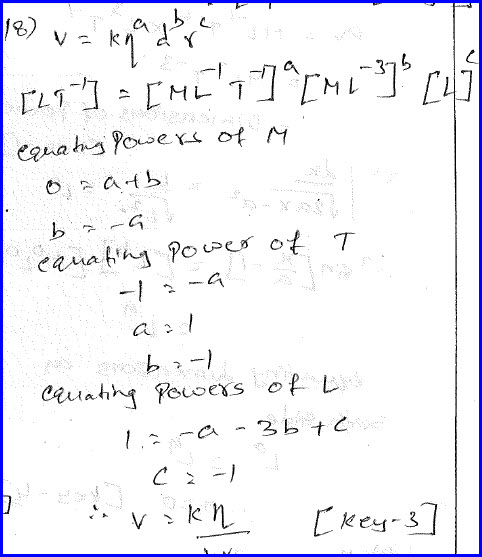 18) v = kη^a d^b r^c
[LT^-1] = [ML^-1 T^-1]^a [ML^-3]^b [L]^c
equating Powers of M
0 = a+b
b = -a
equating power of T
-1 = -a
a = 1
b = -1
equating Powers of L
1 = -a - 3b + c
c = -1
∴ v = kη [key-3]